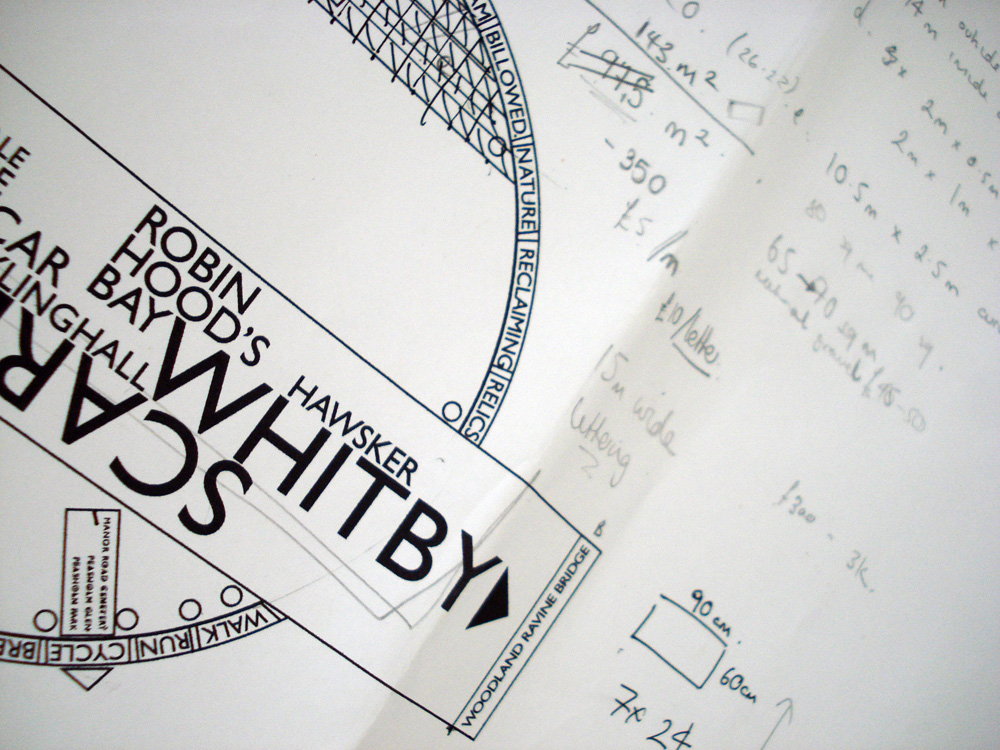 AM|BILLOWED.|NATURE|RECLAIMING|RELICS
LE
CAR
KLINGHALL
ROBIN
HOOD'S
BAY
HAWSKER
WHITBY
SCAR
WOODLAND RAVINE BRIDGE
MANOR ROAD CEMETERY
PEASHOLM GLEN
PEASHOLM PARK
WALK|RUN|CYCLE|BRE
143.m2
(26.22)
£97,5
m2
- 350
£5/m
£10/letter.
15m wide
lettering
?
d.
2m × 0.5m
2m × 1m
10.5m × 2.5m
65 → 90 sqm
£45-50
£300 - 3k.
B
90cm.
60cm
7x 24